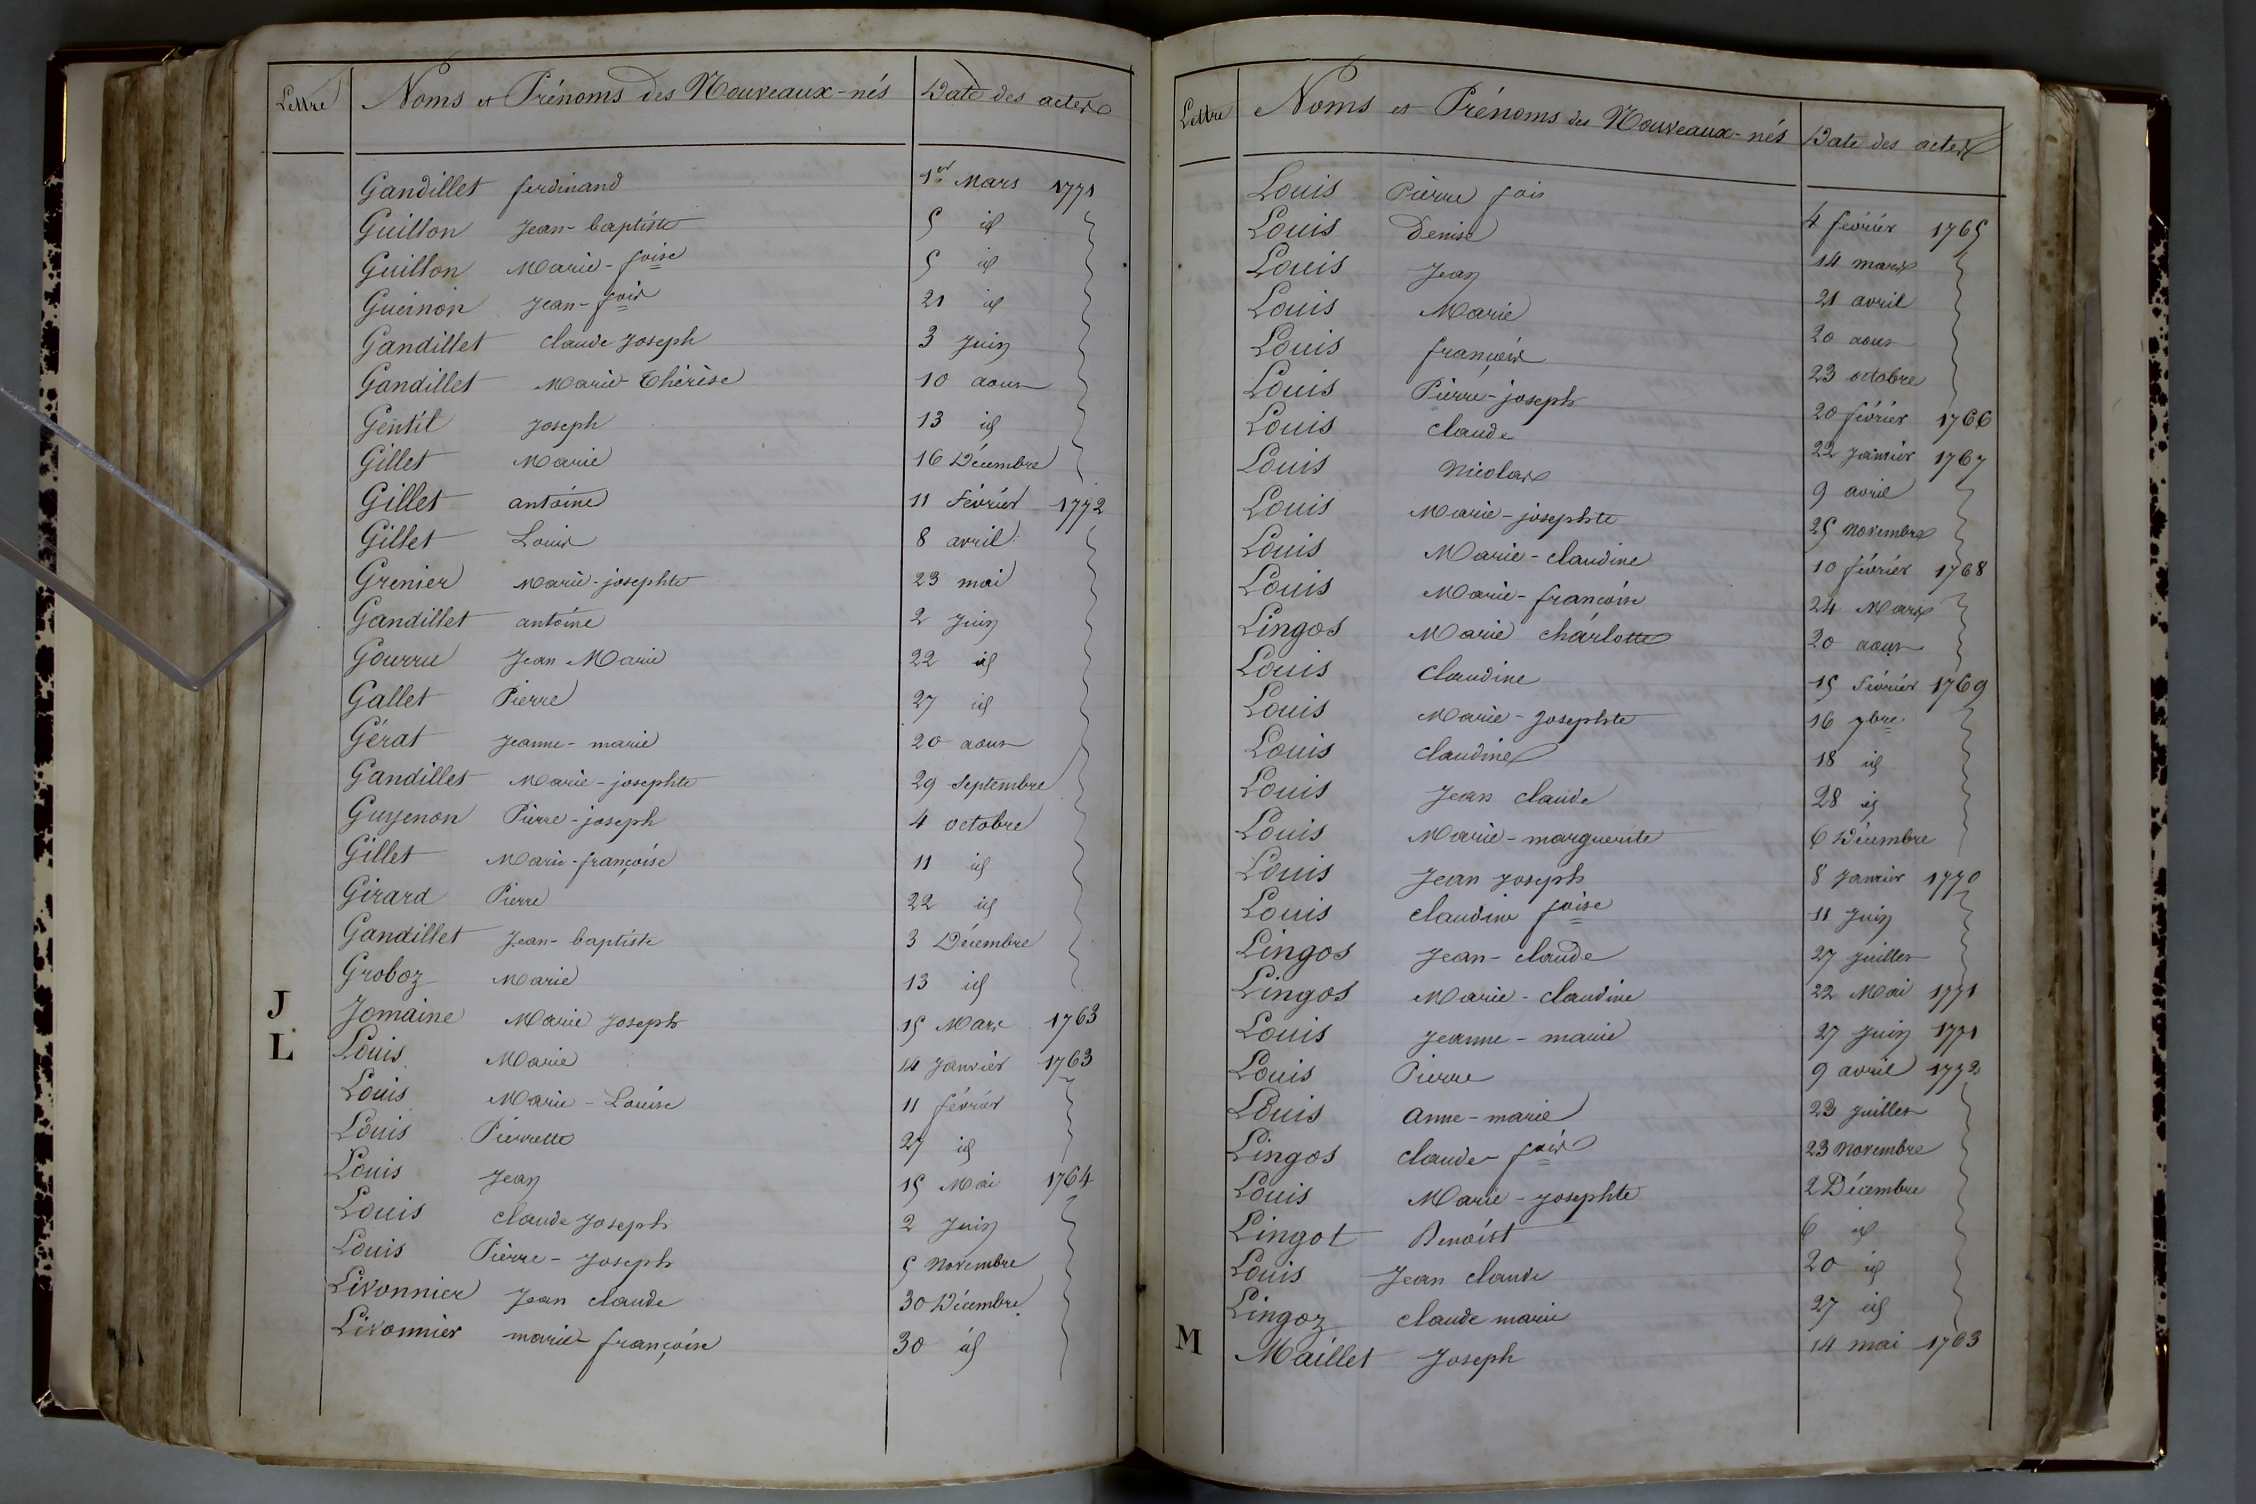 Lettre Noms et Prénoms des Nouveaux-nés Date des actes
Gandillet ferdinand 1er Mars 1771
Guillon Jean-baptiste 5 id
Guillon Marie-foise 5 id
Gueinon Jean-fois 21 id
Gandillet Claude Joseph 3 Juin
Gandillet Marie Thérèse 10 aout
Gentil Joseph 13 id
Gillet Marie 16 Décembre
Gillet antoine 11 Février 1772
Gillet Louis 8 avril
Grenier Marie-josephte 23 mai
Gandillet antoine 2 Juin
Gourru Jean Marie 22 id
Gallet Pierre 27 id
Gérat Jeanne-marie 20 aout
Gandillet Marie-josephte 29 Septembre
Guyenon Pierre-joseph 4 octobre
Gillet Marie-françoise 11 id
Girard Pierre 22 id
Gandillet Jean-baptiste 3 Décembre
Groboz Marie 13 id
J Jomaine Marie Joseph 15 Mars 1763
L Louis Marie 14 Janvier 1763
Louis Marie-Louise 11 février
Louis Pierrette 27 id
Louis Jean 15 Mai 1764
Louis Claude Joseph 2 Juin
Louis Pierre-Joseph 5 Novembre
Livonnier Jean claude 30 Décembre
Livonnier marie françoise 30 id
Lettre Noms et Prénoms des Nouveaux-nés Date des actes
Louis Pierre fois 4 février 1765
Louis Denise 14 mars
Louis Jean 21 avril
Louis Marie 20 aout
Louis françois 23 octobre
Louis Pierre-joseph 20 février 1766
Louis claude 22 Janvier 1767
Louis Nicolas 9 avril
Louis Marie-josephte 25 Novembre
Louis Marie-claudine 10 février 1768
Louis Marie-françoise 24 Mars
Lingos Marie charlotte 20 aout
Louis claudine 15 Février 1769
Louis Marie-Josephte 16 7bre
Louis claudine 18 id
Louis Jean claude 28 id
Louis Marie-marguerite 6 Décembre
Louis Jean Joseph 8 Janvier 1770
Louis claudine foise 11 Juin
Lingos Jean-claude 27 juillet
Lingos Marie-claudine 22 Mai 1771
Louis Jeanne-marie 27 Juin 1771
Louis Pierre 9 avril 1772
Louis anne-marie 23 juillet
Lingos claude fois 23 Novembre
Louis Marie-Josephte 2 Décembre
Lingot Benoist 6 id
Louis Jean claude 20 id
Lingoz claude marie 27 id
M Maillet Joseph 14 mai 1763